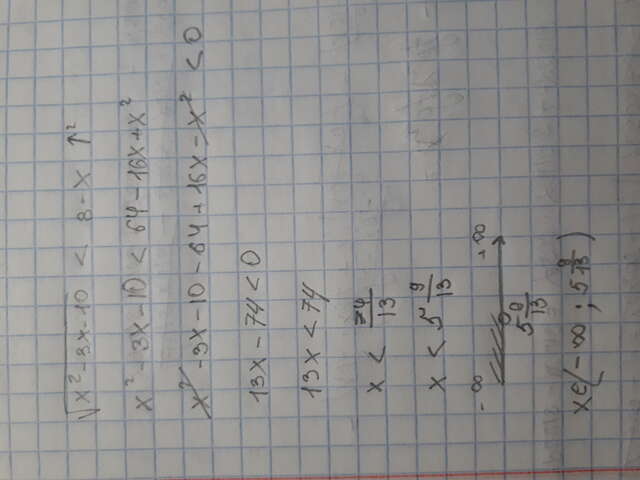 √x²-3x-10 < 8-x ↑²
x²-3x-10 < 64-16x+x²
x²-3x-10-64+16x-x² < 0
13x-74<0
13x<74
x < 74/13
x < 5 9/13
-∞ +∞
5 9/13
x∈(-∞; 5 9/13)